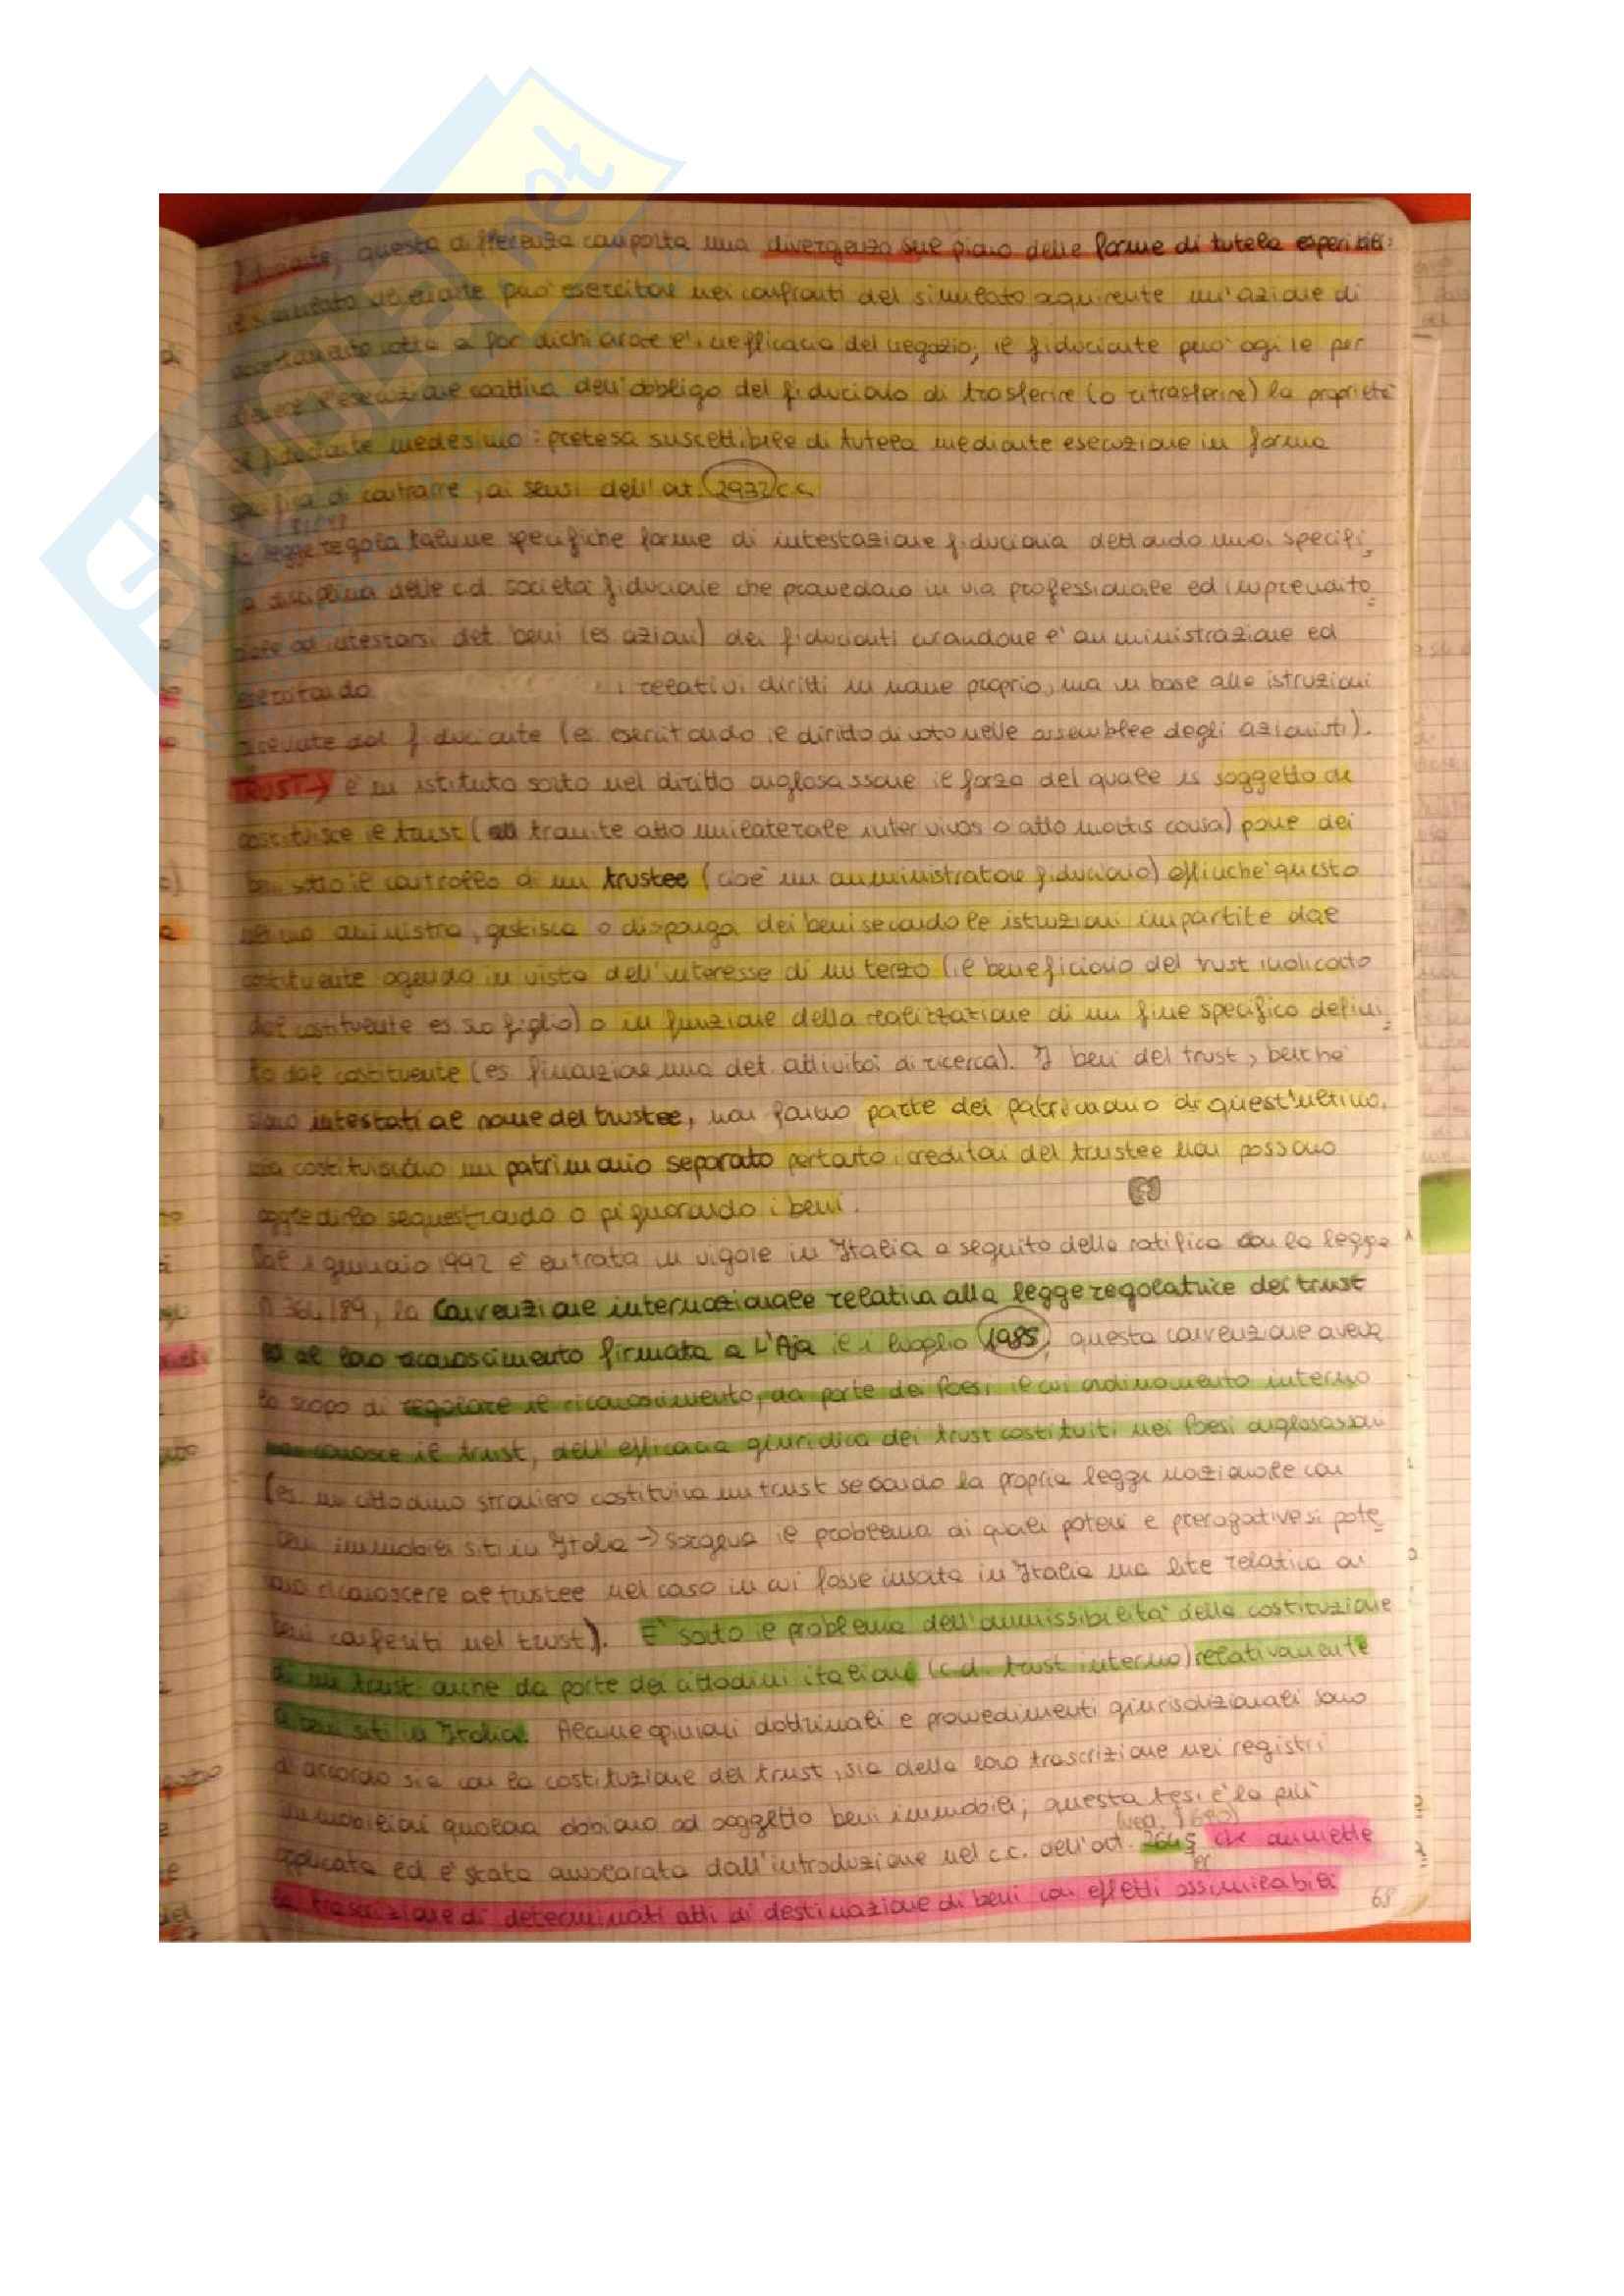 SKUOLA.net
fiduciante, questa differenza comporta una divergenza sul piano delle forme di tutela esperibili:
il simulato alienante può esercitare nei confronti del simulato acquirente un'azione di
accertamento volta a far dichiarare l'inefficacia del negozio; il fiduciante può agire per
l'esecuzione coattiva dell'obbligo del fiduciario di trasferire (o ritrasferire) la proprietà
al fiduciante medesimo: pretesa suscettibile di tutela mediante esecuzione in forma
specifica di contrarre, ai sensi dell'art. 2932 c.c.
La legge regola talune specifiche forme di intestazione fiduciaria dettando una specifi
ca disciplina delle c.d. società fiduciarie che provvedano in via professionale ed imprendito
riale ad intestarsi det. beni (es azioni) dei fiducianti curandone l'amministrazione ed
esercitando i relativi diritti in nome proprio, ma in base alle istruzioni
ricevute dal fiduciante (es. esercitando il diritto di voto nelle assemblee degli azionisti).
TRUST → è un istituto sorto nel diritto anglosassone il forza del quale il soggetto che
costituisce il trust (tramite atto unilaterale inter vivos o atto mortis causa) pone dei
beni sotto il controllo di un trustee (cioè un amministratore fiduciario) affinché questo
ultimo amministra, gestisca o disponga dei beni secondo le istruzioni impartite dal
costituente agendo in vista dell'interesse di un terzo (il beneficiario del trust indicato
dal costituente es. suo figlio) o in funzione della realizzazione di un fine specifico defini
to dal costituente (es finanziare una det. attività di ricerca). I beni del trust, benché
siano intestati al nome del trustee, non fanno parte del patrimonio di quest'ultimo,
ma costituiscono un patrimonio separato pertanto i creditori del trustee non possono
aggredirlo sequestrando o pignorando i beni.
Dal 1 gennaio 1992 è entrata in vigore in Italia a seguito della ratifica con la legge
n 364/89, la Convenzione internazionale relativa alla legge regolatrice dei trust
ed al loro riconoscimento firmata a L'Aja il 1 luglio 1985, questa convenzione aveva
lo scopo di regolare il riconoscimento, da parte dei Paesi il cui ordinamento interno
non conosce il trust, dell'efficacia giuridica dei trust costituiti nei Paesi anglosassoni
(es. un cittadino straniero costituiva un trust secondo la propria legge nazionale con
beni immobili siti in Italia → sorgeva il problema di quali poteri e prerogative si pote
vano riconoscere al trustee nel caso in cui fosse insorta in Italia una lite relativa ai
beni conferiti nel trust). È sorto il problema dell'ammissibilità della costituzione
di un trust anche da parte dei cittadini italiani (c.d. trust interno) relativamente
a beni siti in Italia. Alcune opinioni dottrinali e provvedimenti giurisdizionali sono
d'accordo sia con la costituzione del trust, sia della loro trascrizione nei registri
immobiliari qualora abbiano ad oggetto beni immobili; questa tesi è la più
(ved. § 680)
applicata ed è stata avvalorata dall'introduzione nel c.c. dell'art. 2645 ter che ammette
la trascrizione di determinati atti di destinazione di beni con effetti assimilabili
68